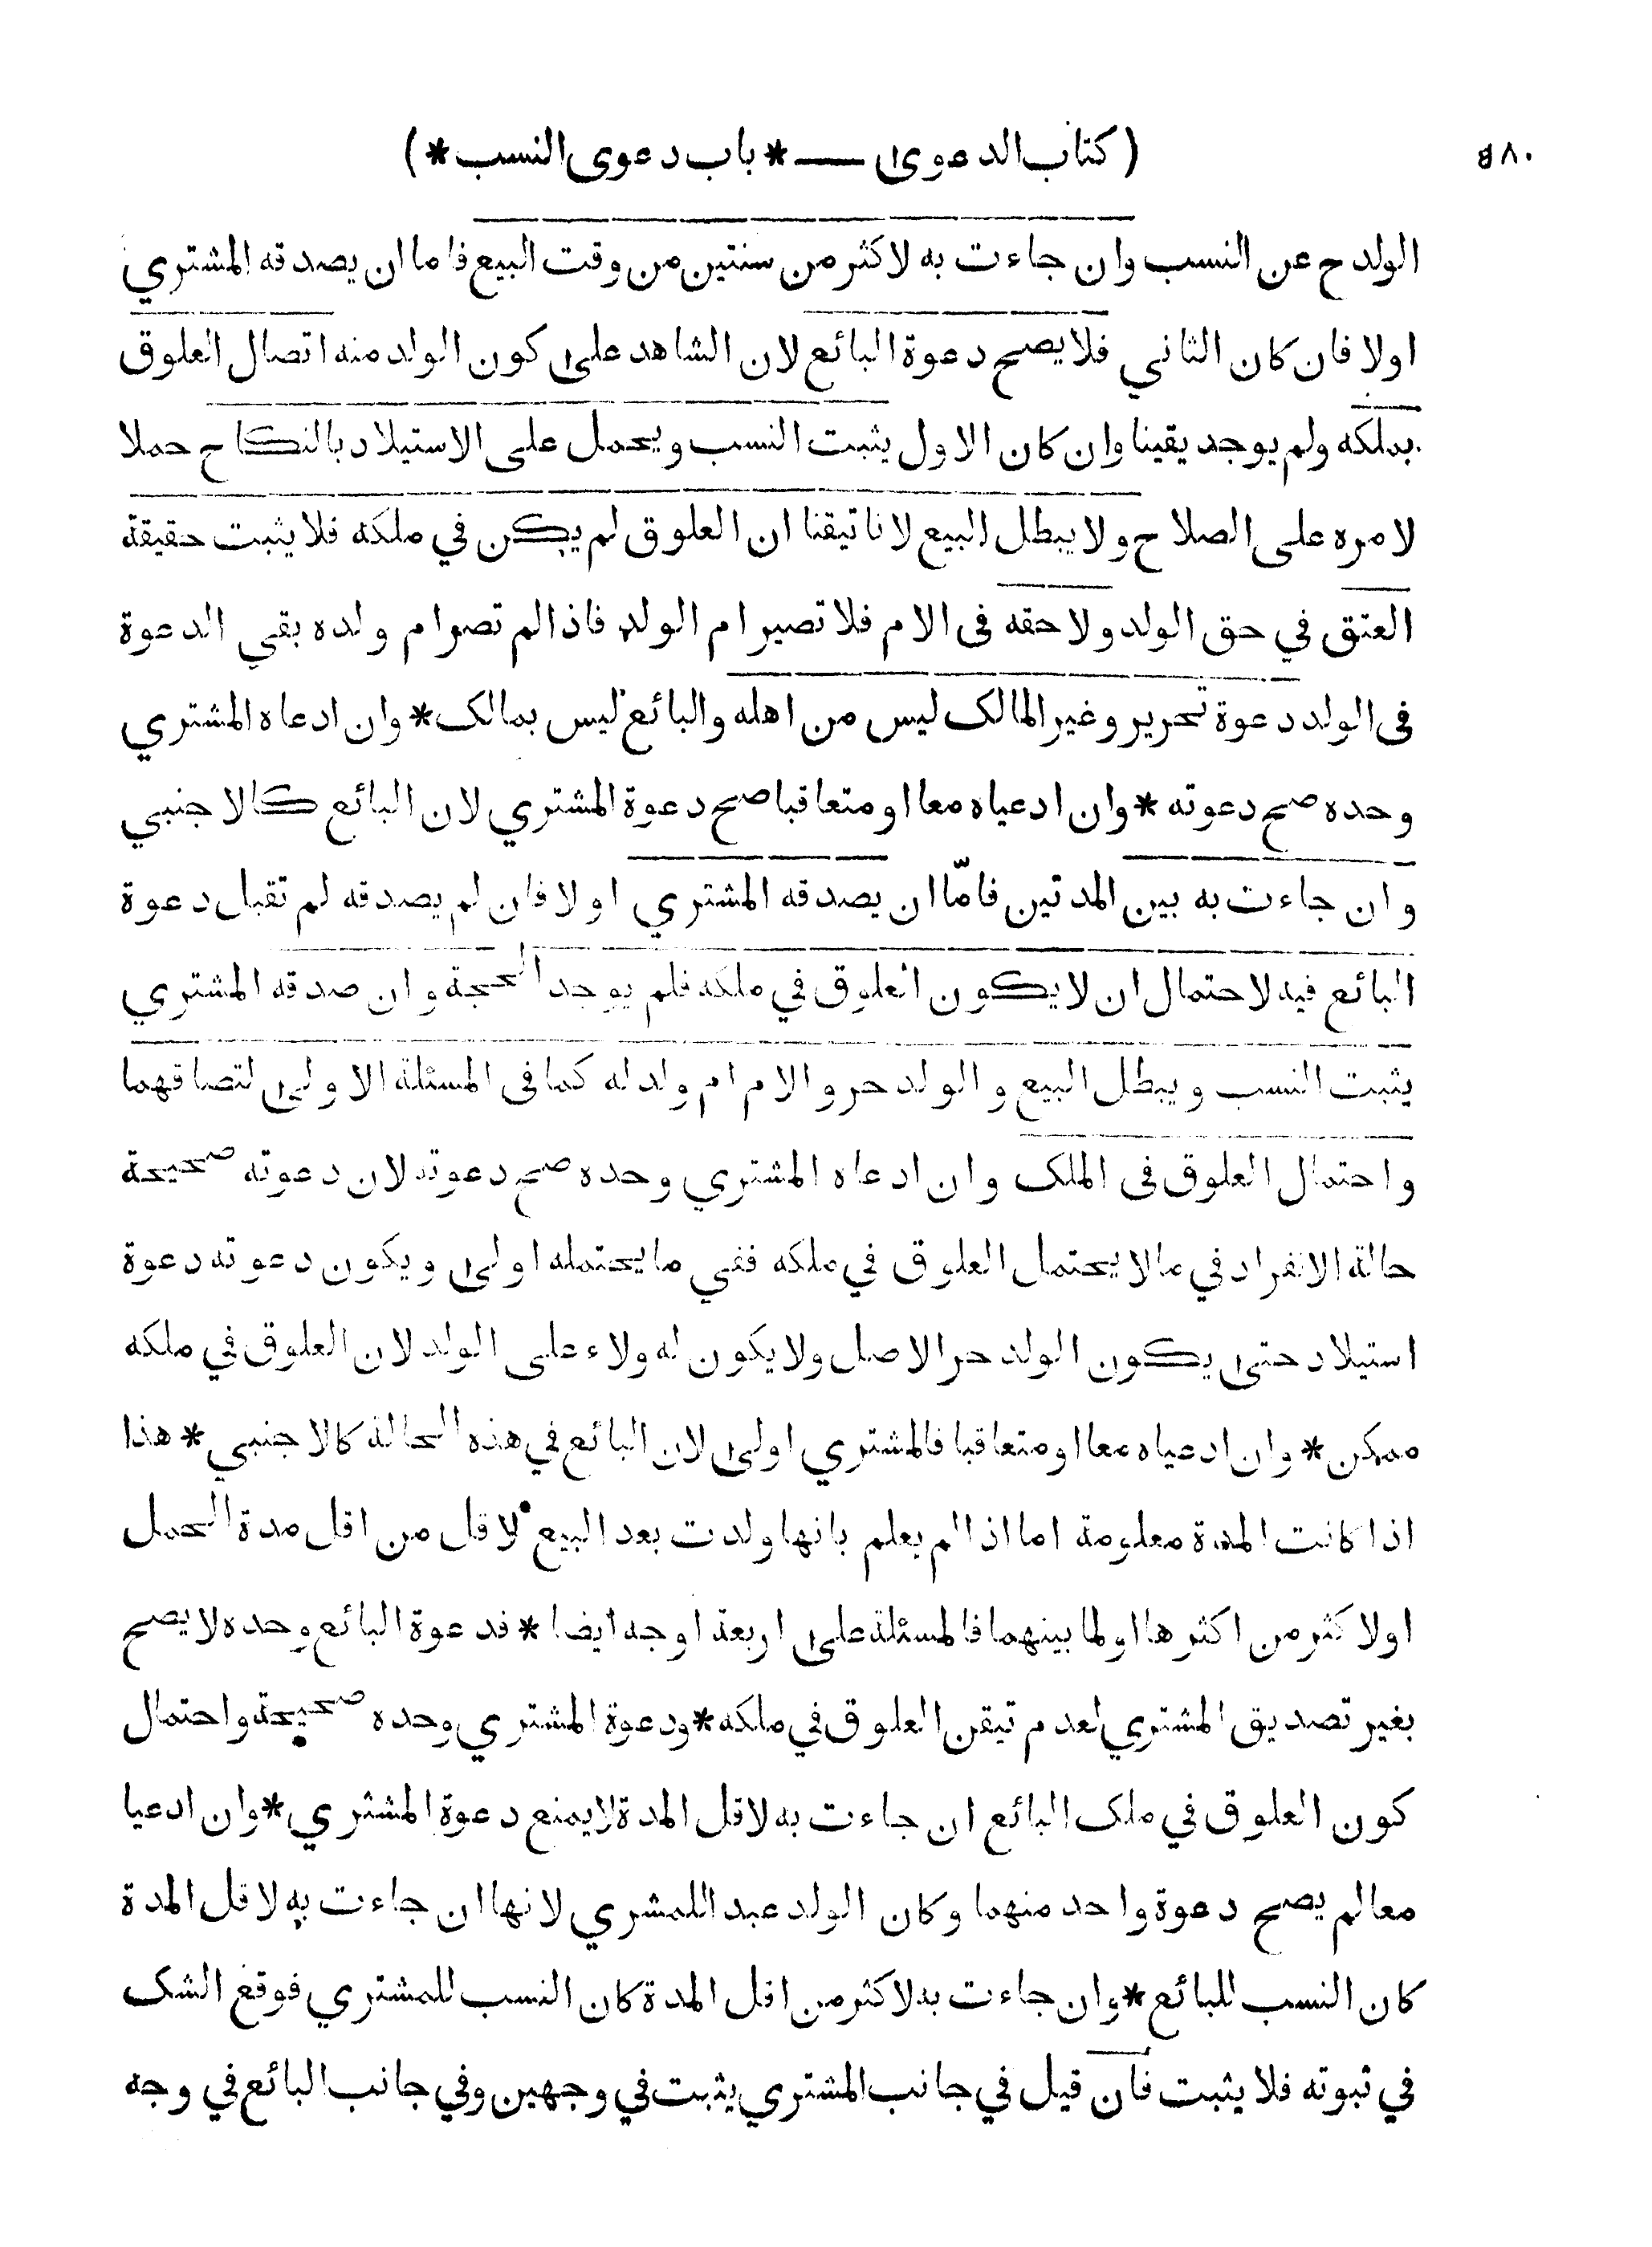 ( كتاب الدعوى — * باب دعوى النسب * )
الولد ح عن النسب وان جاءت به لاكثر من سنتين من وقت البيع فاما ان يصدقه المشتري
اولا فان كان الثاني فلا يصح دعوة البائع لان الشاهد على كون الولد منه اتصال العلوق
بملكه ولم يوجد يقينا وان كان الاول يثبت النسب ويحمل على الاستيلاد بالنكاح حملا
لامره على الصلاح ولا يبطل البيع لانا تيقنا ان العلوق لم يكن في ملكه فلا يثبت حقيقة
العتق في حق الولد ولا حقه فى الام فلا تصير ام الولد فاذا لم تصر ام ولده بقي الدعوة
فى الولد دعوة تحرير وغير المالك ليس من اهله والبائع ليس بمالك * وان ادعاه المشتري
وحده صح دعوته * وان ادعياه معا او متعاقبا صح دعوة المشتري لان البائع كالاجنبي
وان جاءت به بين المدتين فامّا ان يصدقه المشتري اولا فان لم يصدقه لم تقبل دعوة
البائع فيه لاحتمال ان لا يكون العلوق في ملكه فلم يوجد الحجة وان صدقه المشتري
يثبت النسب ويبطل البيع والولد حر والام ام ولد له كما فى المسئلة الاولى لتصاقهما
واحتمال العلوق فى الملك وان ادعاه المشتري وحده صح دعوته لان دعوته صحيحة
حالة الانفراد في مالا يحتمل العلوق في ملكه ففي ما يحتمله اولى ويكون دعوته دعوة
استيلاد حتى يكون الولد حر الاصل ولا يكون له ولاء على الولد لان العلوق في ملكه
ممكن * وان ادعياه معا او متعاقبا فالمشتري اولى لان البائع في هذه الحالة كالاجنبي * هذا
اذا كانت المدة معلومة اما اذا لم يعلم بانها ولدت بعد البيع لاقل من اقل مدة الحمل
اولاكثر من اكثرها او لما بينهما فالمسئلة على اربعة اوجه ايضا * فدعوة البائع وحده لا يصح
بغير تصديق المشتري لعدم تيقن العلوق في ملكه * ودعوة المشتري وحده صحيحة واحتمال
كون العلوق في ملك البائع ان جاءت به لاقل المدة لا يمنع دعوة المشتري * وان ادعيا
معا لم يصح دعوة واحد منهما وكان الولد عبد اللمشري لانها ان جاءت به لاقل المدة
كان النسب للبائع * وان جاءت به لاكثر من اقل المدة كان النسب للمشتري فوقع الشك
في ثبوته فلا يثبت فان قيل في جانب المشتري يثبت في وجهين وفي جانب البائع في وجه